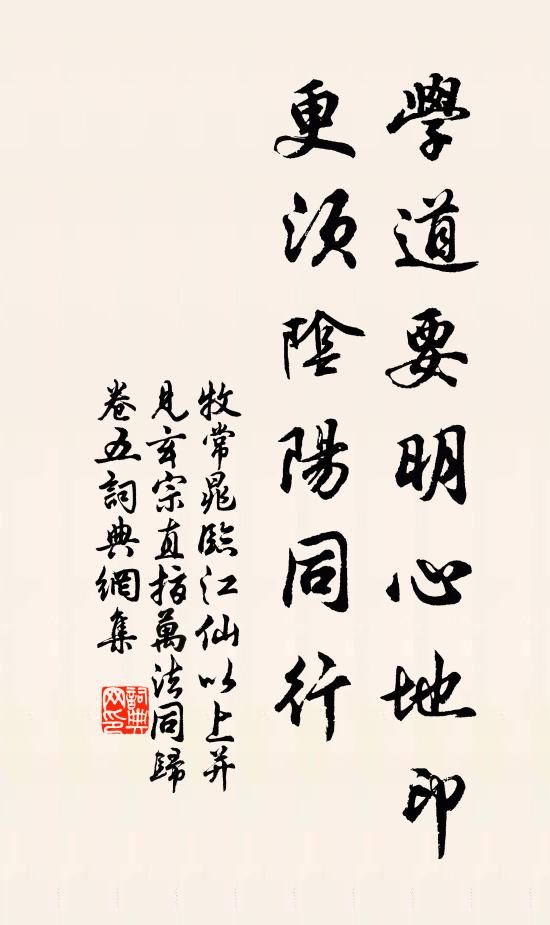 學道要明心地印
更須陰陽同行
牧常晁臨江仙以上并
見玄宗直指萬法同歸
卷五詞典網集
詞典
网印